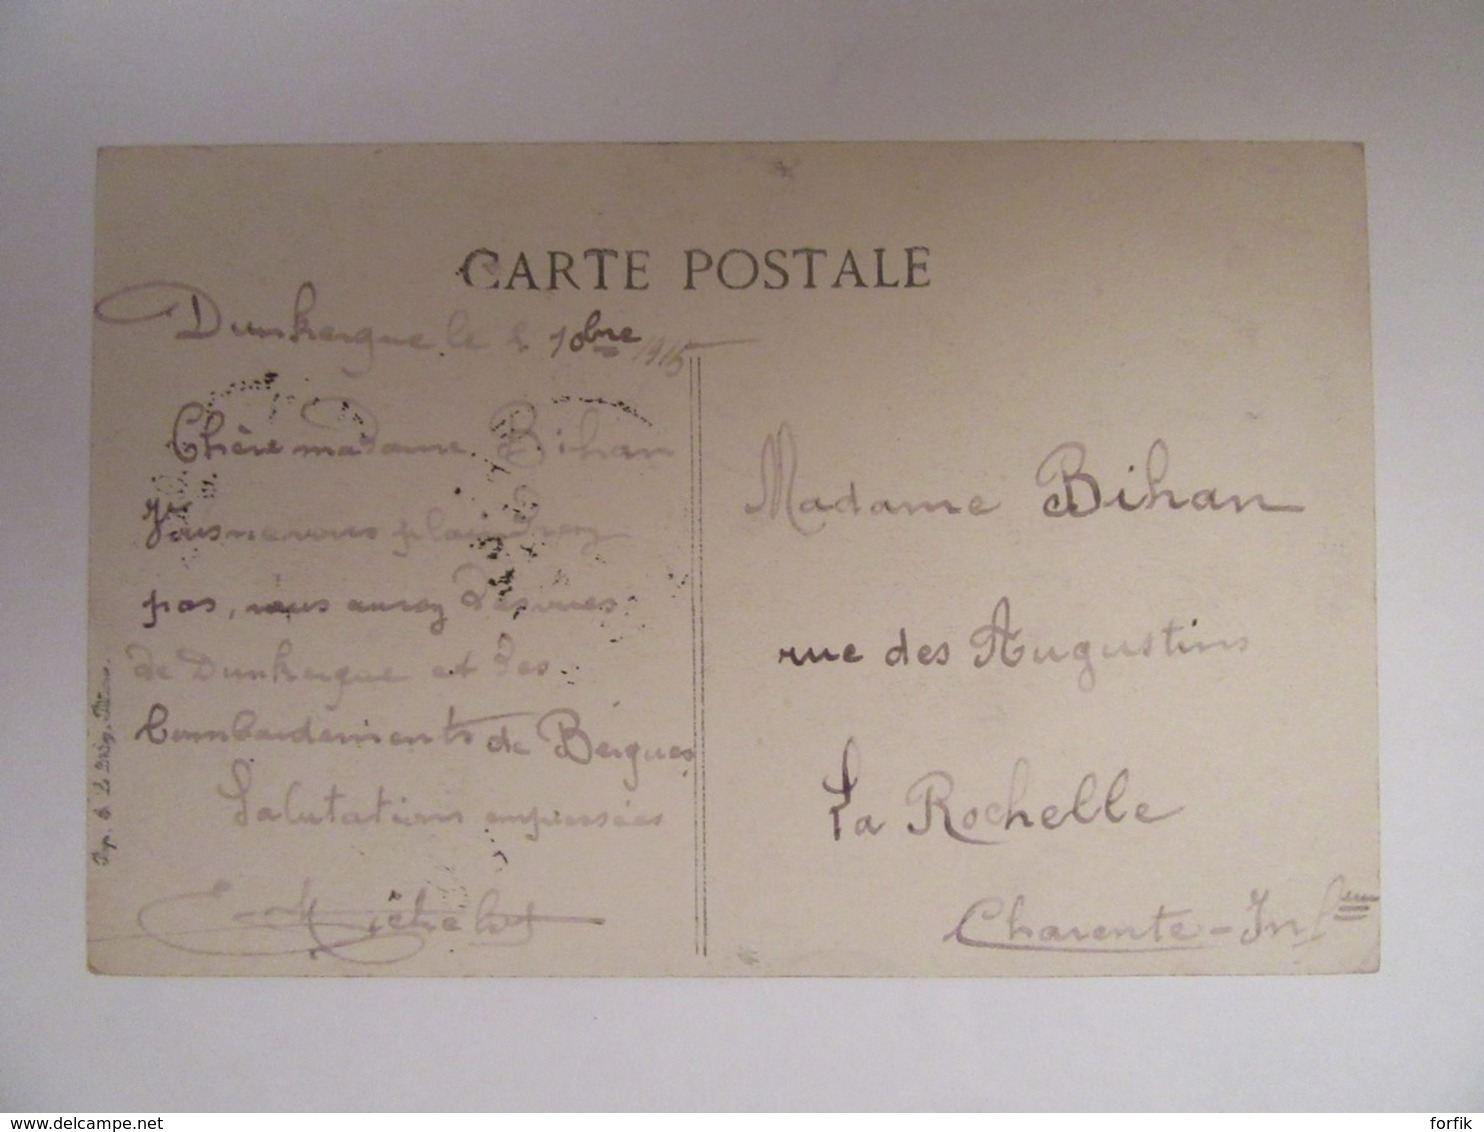 CARTE POSTALE
Dunkerque le 10bre 1915
Chère madame Bihan
Vous ne vous plaindrez
pas, vous aurez des vues
de Dunkerque et des
bombardements de Bergues
Salutations empressées
E. Michel
Madame Bihan
rue des Augustins
La Rochelle
Charente-Infre
delcampe.net
forfik